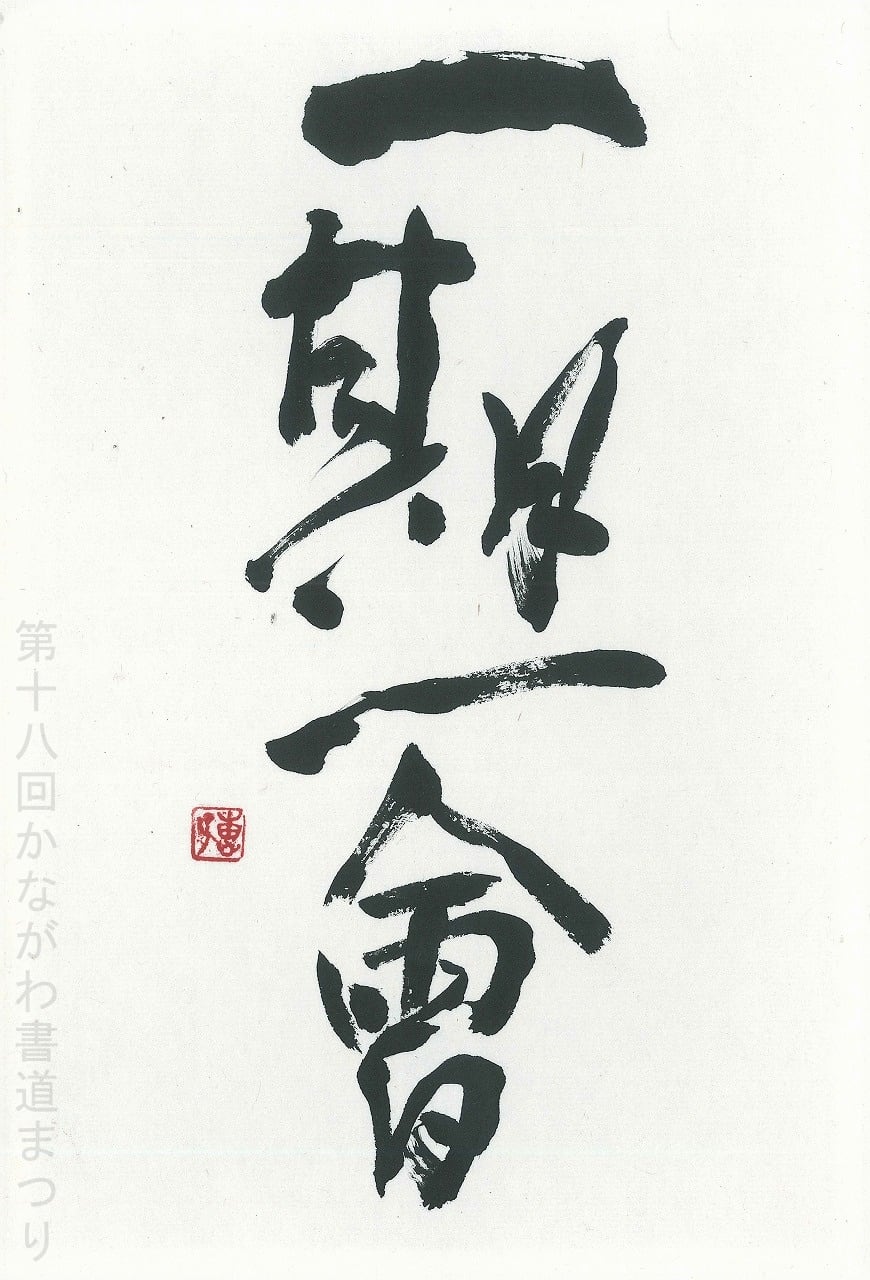 一期一會
第十八回かながわ書道まつり